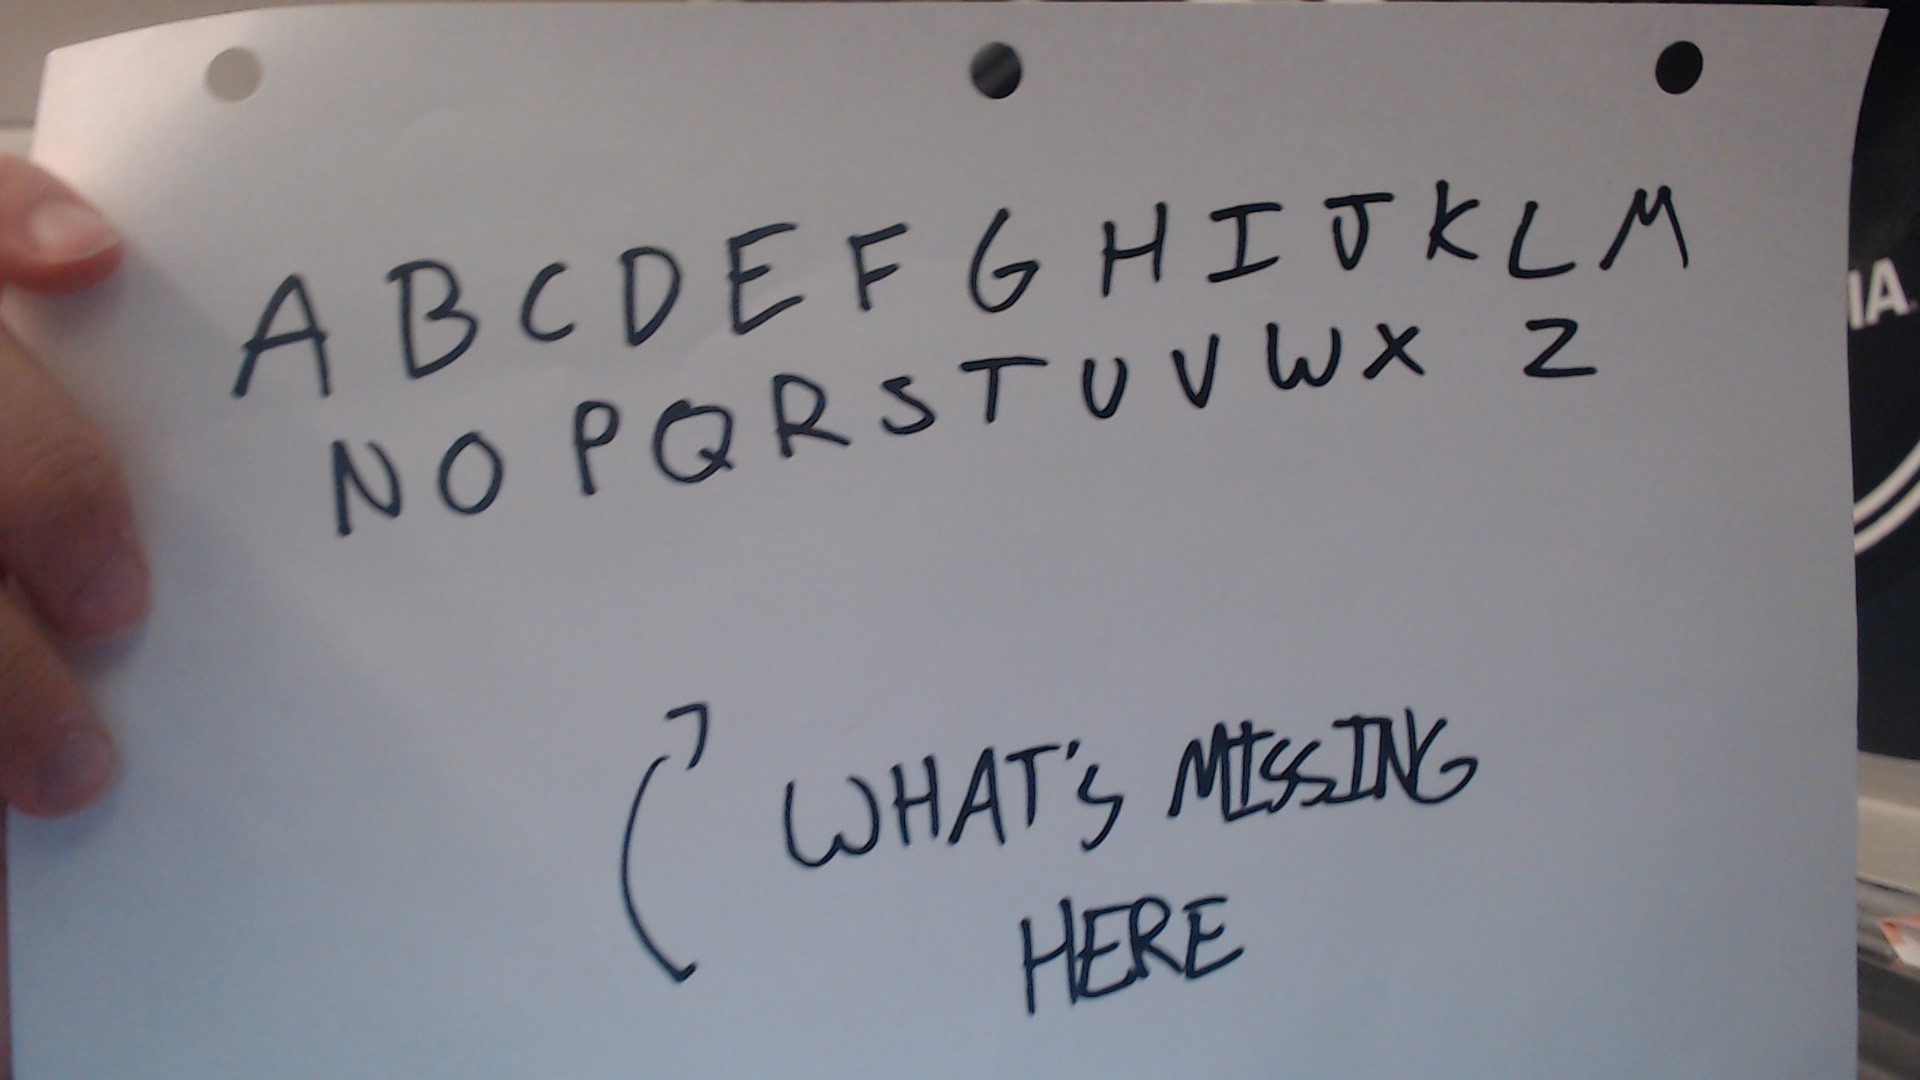 A B C D E F G H I J K L M
N O P Q R S T U V W X Z
WHAT'S MISSING
HERE
IA